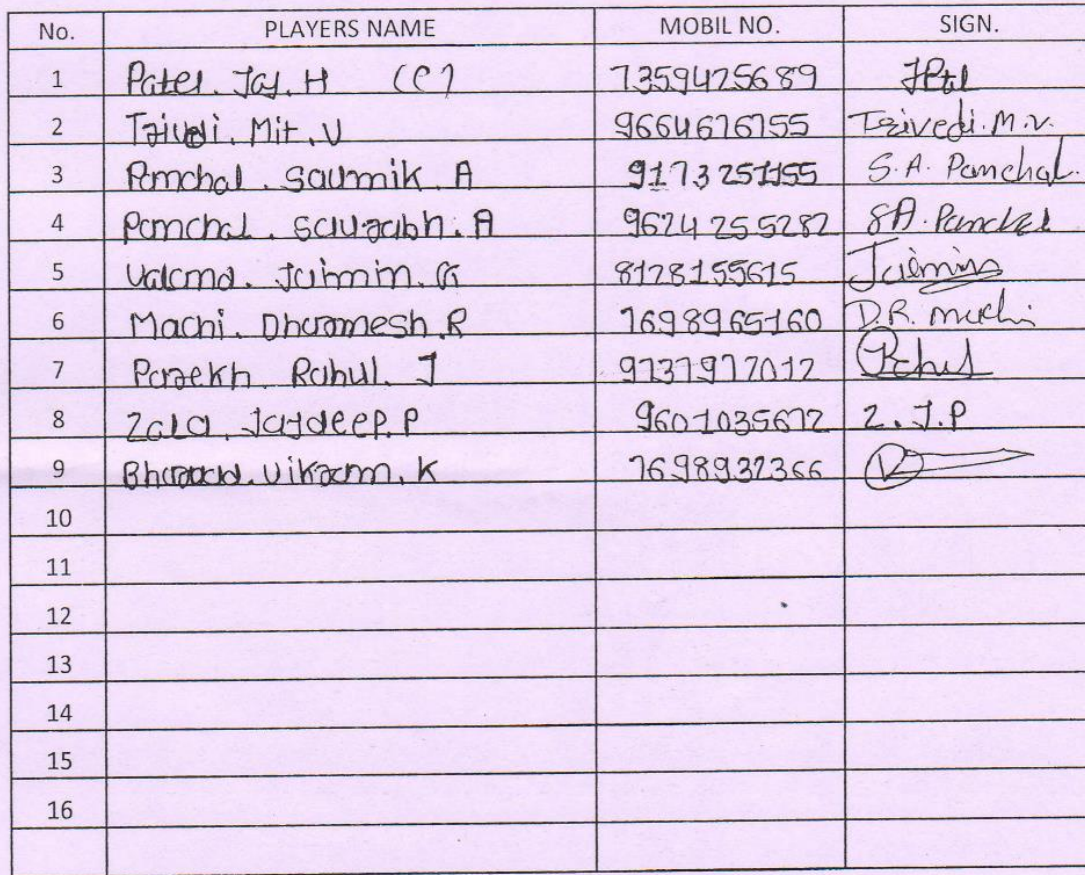 No. PLAYERS NAME MOBIL NO. SIGN.
1 Patel. Jay. H (C) 7359425689 JPtl
2 Trivedi. Mit. V 9664676755 Trivedi. M.V.
3 Pamchal. Saumik. A 9173251155 S.A. Pamchal.
4 Pamchal. Saurabh. A 9624255282 SA. Pamchal
5 Valamd. Jaimin. G 8128155615 Jaimin
6 Machi. Dharmesh. R 7698965160 D.R. machi
7 Parekh Rahul. J 9737977012 Rahul
8 Zala. Jaydeep. P 9601035672 Z.J.P
9 Bharwad. Vikram. K 7698932366
10
11
12
13
14
15
16